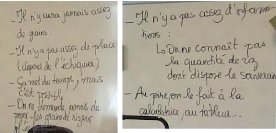 - Il n'y aura jamais assez
de grains.
- Il n'y a pas assez de place
(dépend de l'échiquier)
- Ça met du temps, mais
c'est
- On ne demande
les grands
- Il n'y a pas assez d'informa-
tions :
↳ On ne connaît pas
la quantité de riz
dont dispose le souverain
- Au pire, on le fait à la
calculatrice, au tableur..